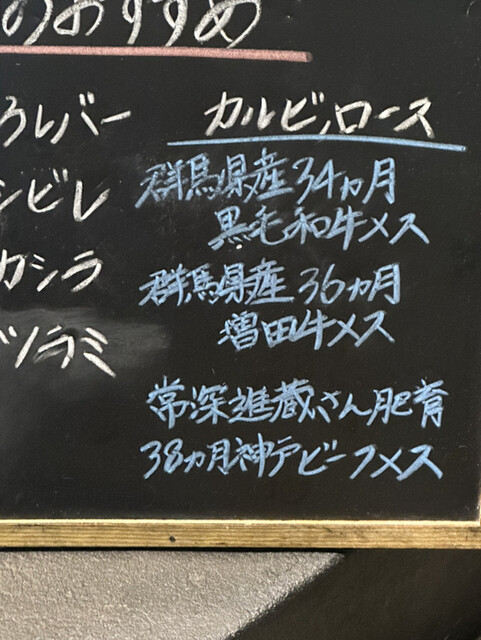 のおすすめ
レバー
シビレ
カシラ
ツラミ
カルビ、ロース
群馬県産34ヵ月
黒毛和牛メス
群馬県産36ヵ月
増田牛メス
常深進蔵さん肥育
38ヵ月神戸ビーフメス